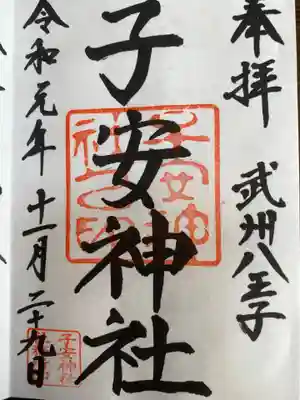 奉拝
武州八王子
子安神社
子安神社之印
令和元年十一月二十九日